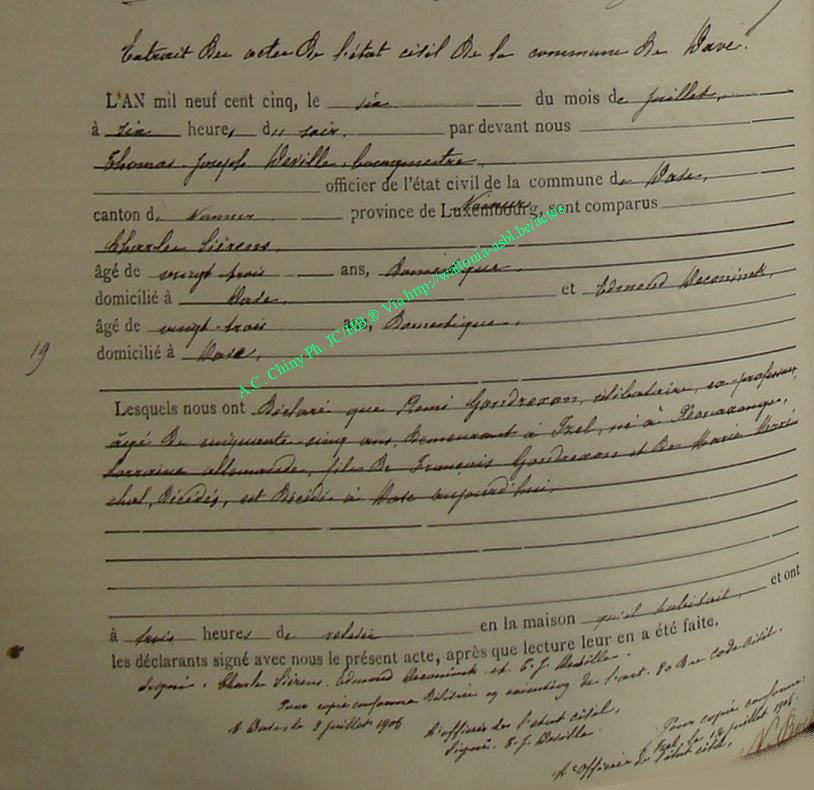 Extrait des actes de l'état civil de la commune de Dave.
L'AN mil neuf cent cinq, le six du mois de juillet,
à six heures du soir. par devant nous
Thomas Joseph Deville, bourgmestre,
officier de l'état civil de la commune de Dave,
canton de Namur province de Luxembourg, Namur sont comparus
Charles Siérens,
âgé de vingt trois ans, Domestique,
domicilié à Dave, et Edmond Deconinck,
âgé de vingt-trois ans, Domestique,
19
domicilié à Dave,
Lesquels nous ont Déclaré que Remi Gondrexon, célibataire, ex-professeur,
âgé de cinquante-cinq ans, demeurant à Izel, né à
Lorraine allemande, fils de François Gondrexon et de Marie Maré
chal, décédés, est décédé à Dave aujourd'hui,
à trois heures de relevée en la maison qu'il habitait, et ont
les déclarants signé avec nous le présent acte, après que lecture leur en a été faite.
Signé: Charles Siérens, Edmond Deconinck et T. J. Deville.
Pour copie conforme délivrée en exécution de l'art. 80 du code civil.
à Dave, le 8 juillet 1905
L'officier de l'état civil,
Signé: T. J. Deville
Pour copie conforme:
Izel, le juillet 1905
L'Officier de l'état civil,
A.C. Chiny Ph. JC/HB ® Via http://wallonia-asbl.be/actes